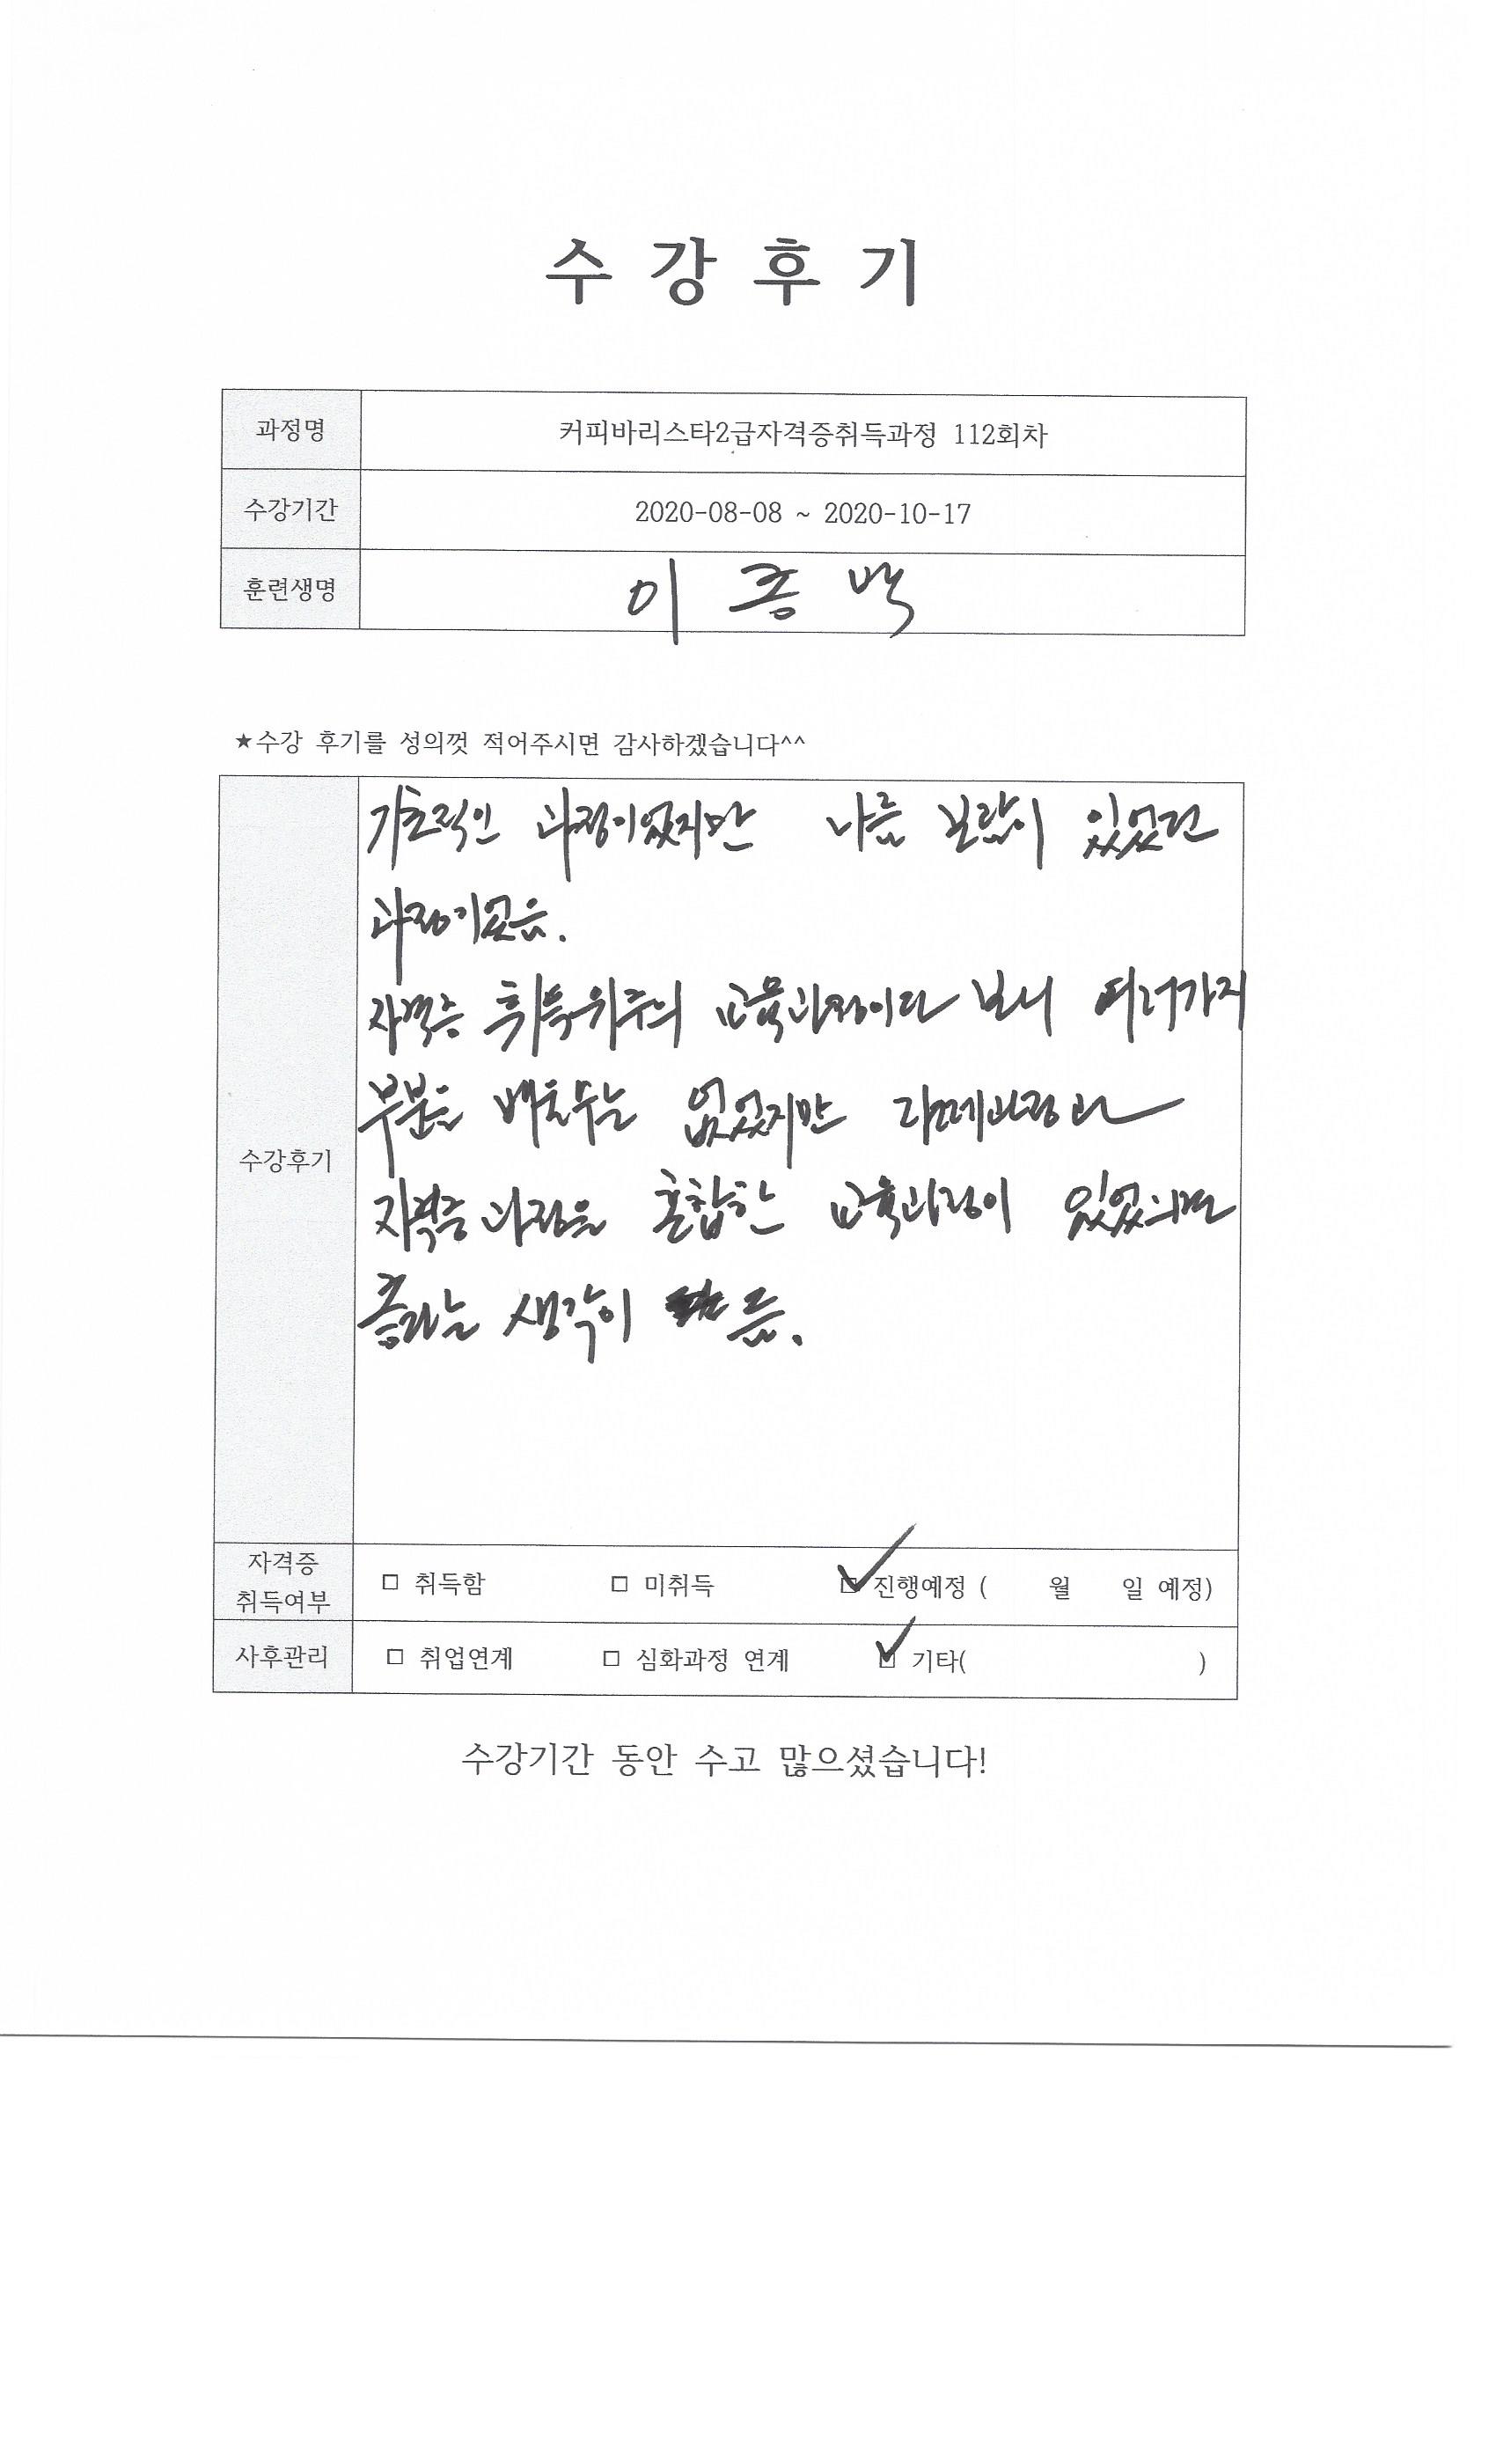 수 강 후 기
과정명 커피바리스타2급자격증취득과정 112회차
수강기간 2020-08-08 ~ 2020-10-17
훈련생명 이 종 백
★수강 후기를 성의껏 적어주시면 감사하겠습니다^^
수강후기
기초적인 과정이었지만 나름 보람이 있었던
과정이었음.
자격증 취득위주의 교육과정이다 보니 여러가지
부분을 배울수는 없었지만 라떼과정과
자격증 과정을 혼합한 교육과정이 있었으면
좋겠다는 생각이 듬.
자격증
취득여부 □ 취득함 □ 미취득 □ 진행예정 ( 월 일 예정)
사후관리 □ 취업연계 □ 심화과정 연계 □ 기타( )
수강기간 동안 수고 많으셨습니다!